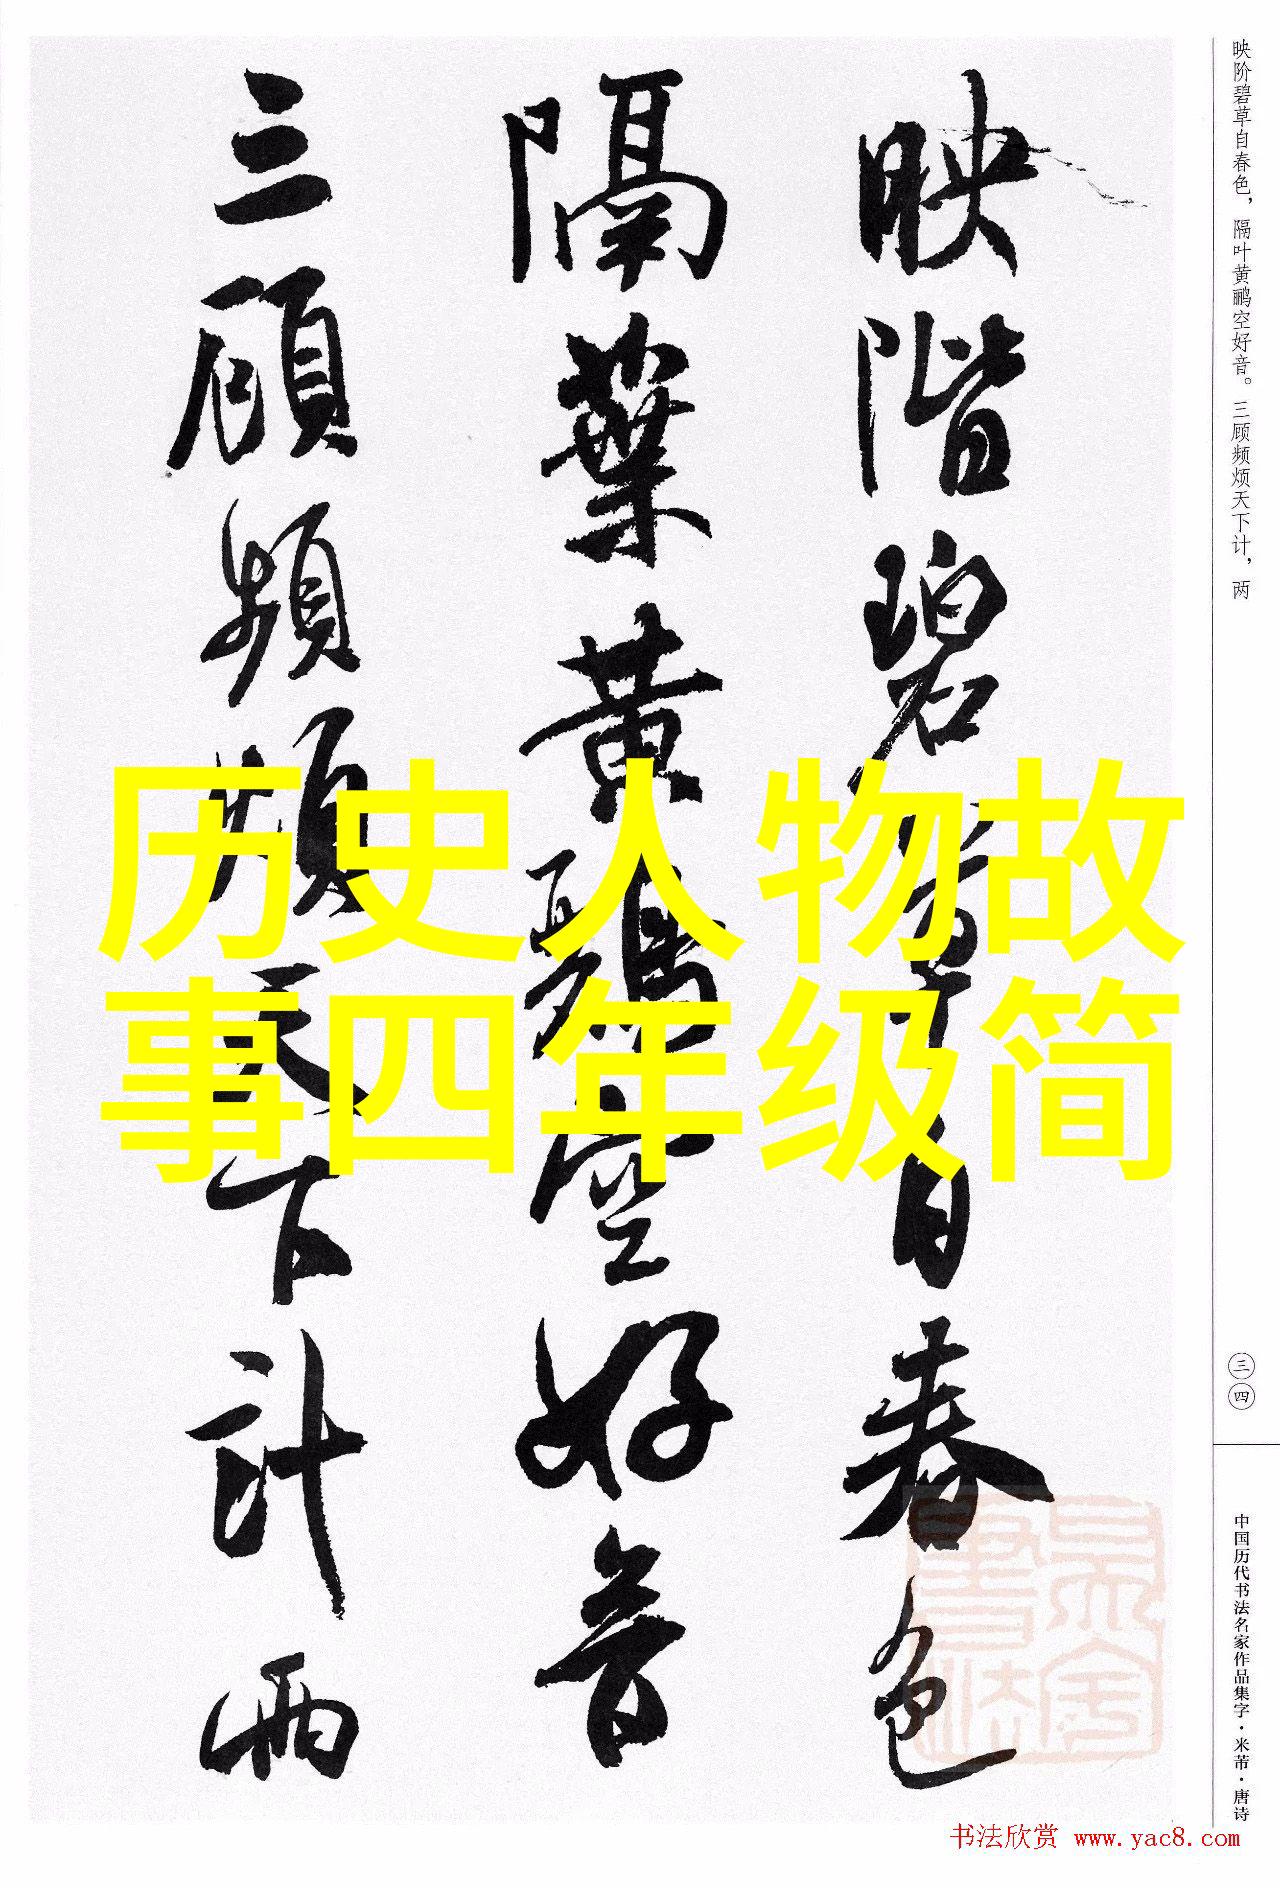 映階碧草自春色
隔葉黃鸝空好音
三顧頻煩天下計兩
历史人物故
事四年级简
映阶碧草自春色，隔叶黄鹂空好音。三顾频烦天下计，两
三四
中国历代书法名家作品集字·米芾·唐诗
书法欣赏 www.yac8.com